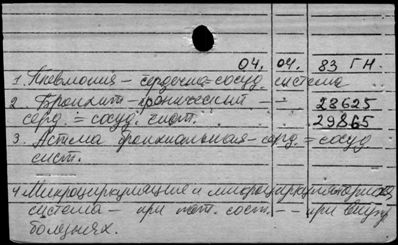 04. 04. 83 ГН.
1. Пневмония – сердечно=сосуд. система
2. Бронхит – хронический – – 28625
серд. = сосуд. сист. 29865
3. Астма бронхиальная – серд. = сосуд
сист.
4. Микроциркуляция и микроциркуляторная
система – при пат. сост. – – при внутр
болезнях.